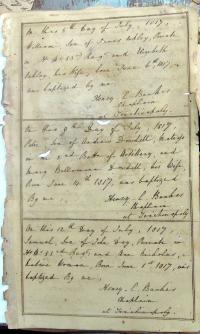 On this 5th Day of July, 1817,
William, Son of James Ashley, Private
in H. M. 53d Regt and Elizabeth
Ashley, his Wife, born June 6th 1817,
was baptized by me.
Henry C. Bankes
Chaplain
at Trichinopoly.
On this 9th Day of July 1817
Peter, Son of Andrew
2nd Battn of Artillery, and
Mary his Wife,
Born June 14th 1817, was baptized
By me,
Henry C. Bankes
Chaplain
at Trichinopoly
On this 12th Day of July, 1817,
Samuel, Son of John Day, Private in
H. M. 53d Regt, and Ann Nicholas, a
native Woman, Born June 1st 1817, was
baptized By me,
Henry C. Bankes
Chaplain
at Trichinopoly.